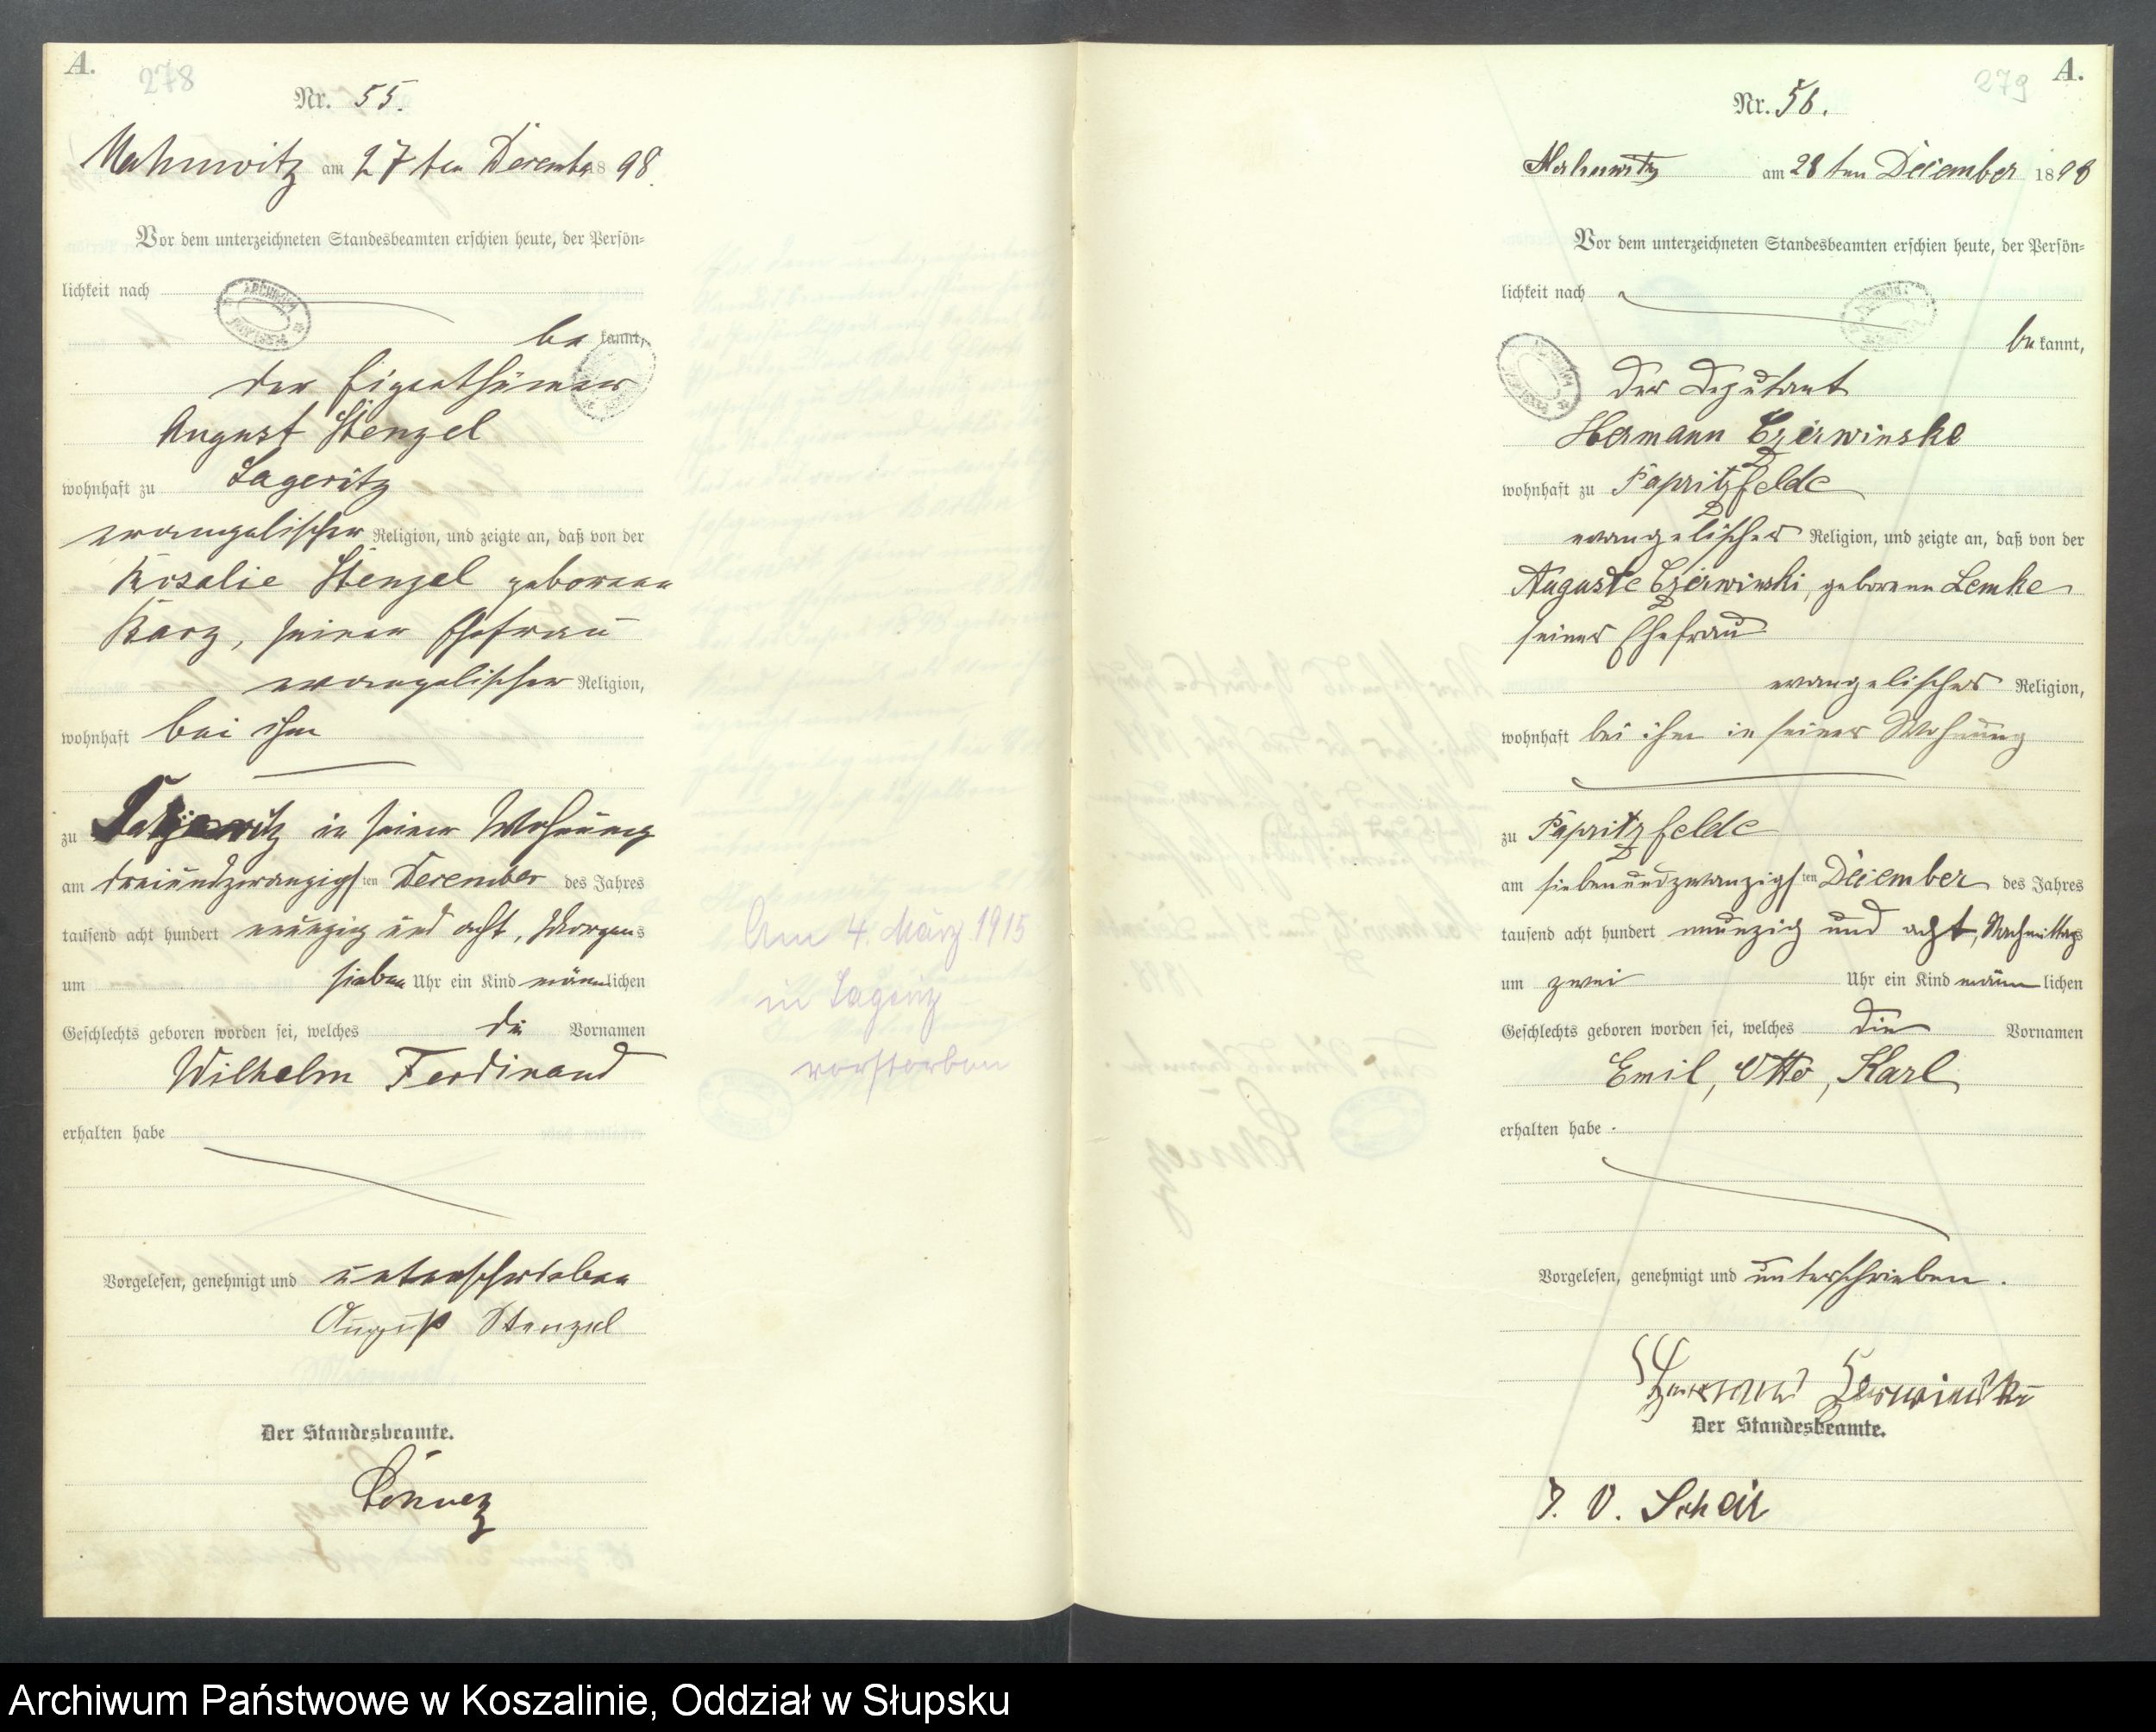 A.
278
Nr. 55.
Mahnwitz am 27ten December 1898.
Vor dem unterzeichneten Standesbeamten erschien heute, der Persön=
lichkeit nach
be kannt,
der Eigenthümer
August Stenzel
wohnhaft zu Lageritz
evangelischer Religion, und zeigte an, daß von der
Rosalie Stenzel geborenen
Karz, seiner Ehefrau
evangelischer Religion,
wohnhaft bei ihm
zu in seiner Wohnung
am dreiundzwanzigsten December des Jahres
tausend acht hundert neunzig und acht, Morgens
um sieben Uhr ein Kind männlichen
Geschlechts geboren worden sei, welches die Vornamen
Wilhelm Ferdinand
erhalten habe
Vorgelesen, genehmigt und unterschrieben
August Stenzel
Der Standesbeamte.
Am 4. März 1915
in Lageritz
verstorben
A.
279
Nr. 56.
Mahnwitz am 28ten December 1898
Vor dem unterzeichneten Standesbeamten erschien heute, der Persön=
lichkeit nach
be kannt,
der Deputant
Hermann Czerwinske
wohnhaft zu Papritzfelde
evangelischer Religion, und zeigte an, daß von der
Auguste Czerwinski, geborene Lemke
seiner Ehefrau
evangelischer Religion,
wohnhaft bei ihm in seiner Wohnung
zu Papritzfelde
am siebenundzwanzigsten December des Jahres
tausend acht hundert neunzig und acht, Nachmittags
um zwei Uhr ein Kind männlichen
Geschlechts geboren worden sei, welches die Vornamen
Emil, Otto, Karl
erhalten habe
Vorgelesen, genehmigt und unterschrieben.
Hermann Czerwinski
Der Standesbeamte.
J. V. Scheir
Archiwum Państwowe w Koszalinie, Oddział w Słupsku